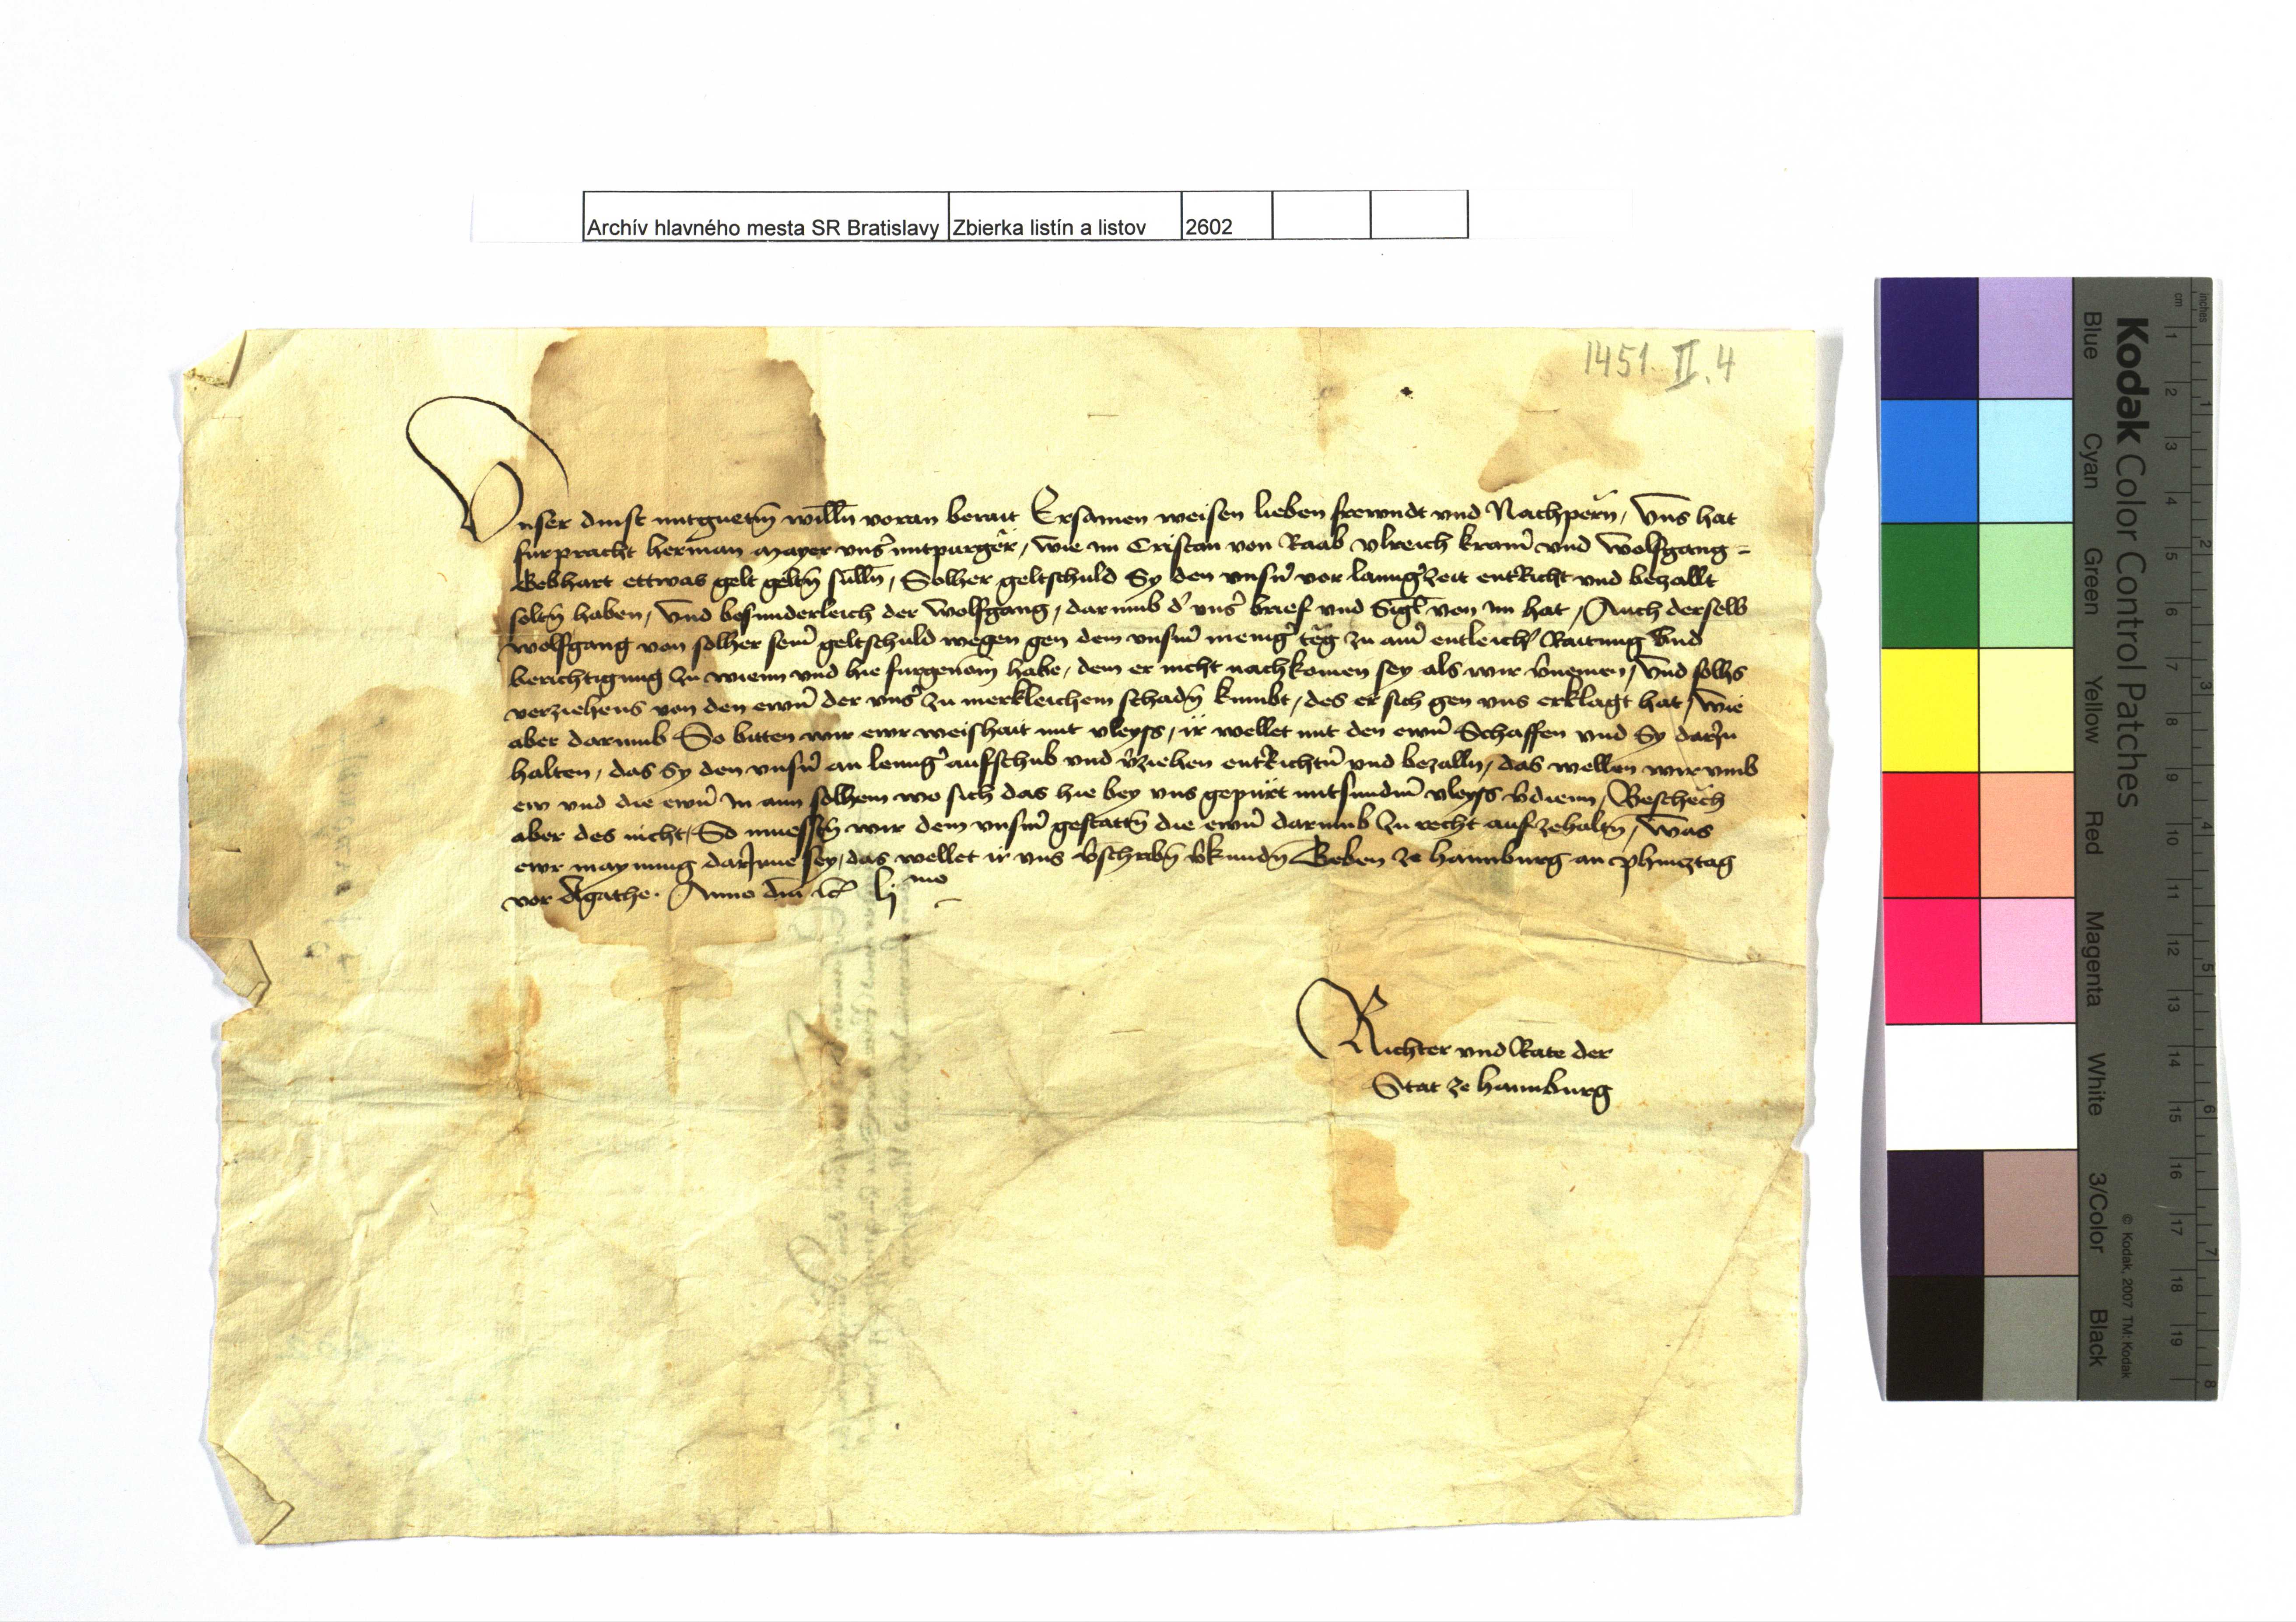 Archív hlavného mesta SR Bratislavy Zbierka listín a listov 2602
1451. II. 4
Vnser dinst mit guetm̄ willn̄ voran berait Ersamen weisen lieben frewndt vnd Nachpern̄, Vns hat
furpracht herman mayer vnsˀ mitpurgˀer, wie im Cristan von Raab vlreich kramˀ vnd Wolfgang -
Gebhart ettwas gelt geltn̄ sulln̄, Solher geltschuld Sy den vnsnˀ vor lanngˀ zeit entricht vnd bezallt
soltn̄ haben, Vnd besunderleich der Wolfgang, darumb dˀ vnsˀ brief vnd Sigl̄ von im hat, Auch derselb
wolfgang von solher seinˀ geltschuld wegen gen dem vnsmˀ menigˀ teg zu ainˀ entleichˀ Raittung Vnd
berichtigung zu wienn vnd hie furgenom̄ habe, dem er nicht nachkomen sey als wir v̄nemen, Vnd solhs
verziehens von den ewnˀ der vnsˀ zu merkleichem schadn̄ kumbt, des er sich gen vns erklagt hat, Wie
aber darumb So bitten wir ewr weishait mit vleyss, ir wellet mit den ewnˀ Schaffen vnd Sy darzu
halten, das Sy den vnsnˀ an lenngˀ aufschub vnd v̄ziehen entrichtn̄ vnd bezalln, das wellen wir vmb
ew vnd die ewnˀ In aim solhem wo sich das hie bey vns gepürt mit sundmˀ vleyss v̄dienn, Beschech
aber des nicht, So muesstn̄ wir dem vnsmˀ gestattn̄ die ewnˀ darumb zu recht aufzehaltn̄, Was
ewr maynung darInne sey, das wellet ir vns v̄schribn̄ v̄kundn̄ Geben ze hainburg an phincztag
vor Agathe. Anno dm̄ ꝛcˀ lj mo
Richter vnd Rate der
Stat ze hainburg
Kodak Color Control Patches
Blue Cyan Green Yellow Red Magenta White 3/Color Black
© Kodak, 2007 TM: Kodak
inches 1 2 3 4 5 6 7 8
cm 1 2 3 4 5 6 7 8 9 10 11 12 13 14 15 16 17 18 19